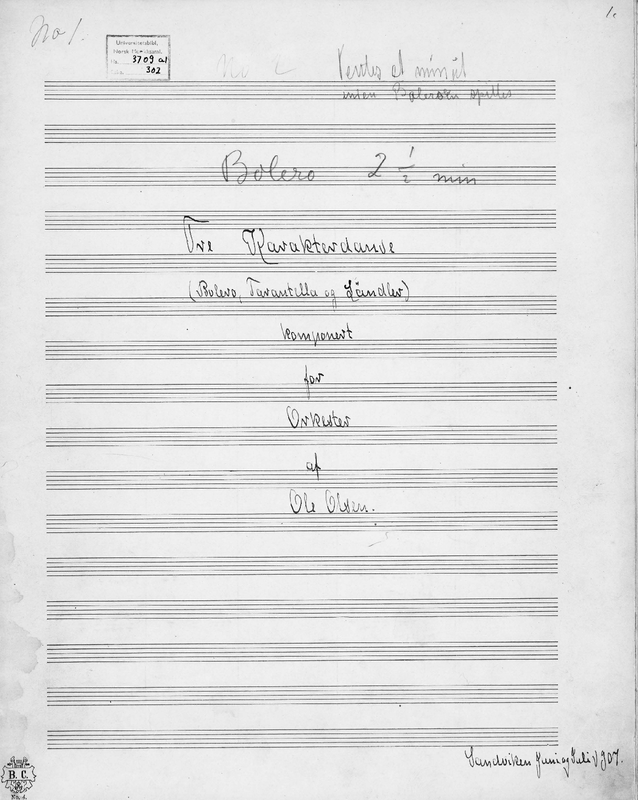 No 1.
1.
Universitetsbibl.
Norsk Musikksaml.
3709 a1
302
No 2
Ventes et minut
inden Boleroen spilles
Bolero 2 1/2 min
Tre Karakterdanse
(Bolero, Tarantella og Ländler)
komponert
for
Orkester
af
Ole Olsen.
Sandviken Juni og Juli 1907.
B. C.
No. 4.